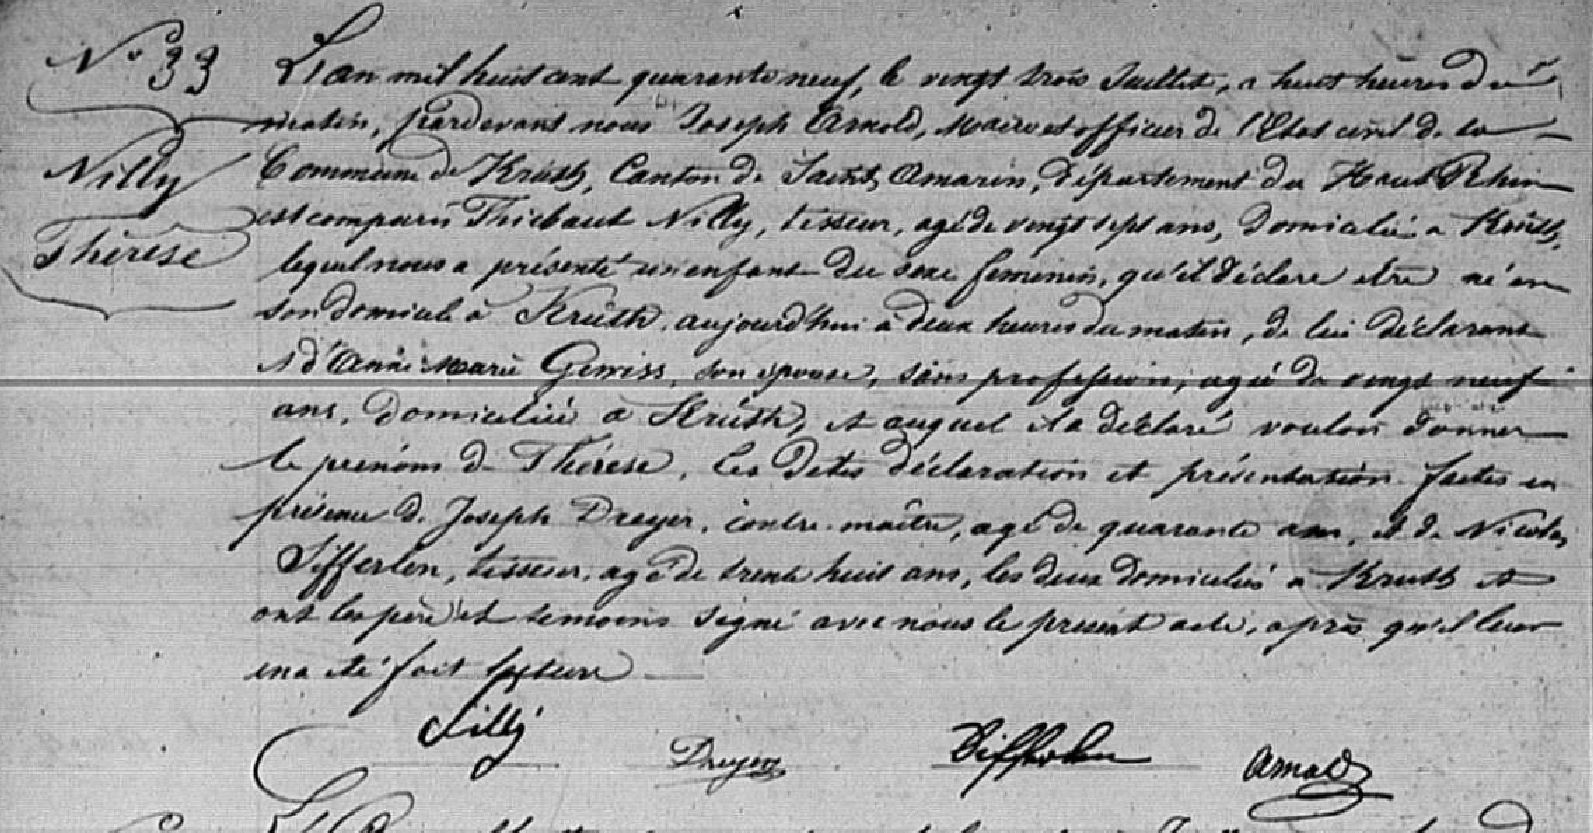 N° 33
Nilly
Thérèse
L'an mil huit cent quarante neuf, le vingt trois Juillet, a huit heures du
matin, pardevant nous Joseph Arnold, Maire et officier de l'Etat civil de la
Commune de Krüth, Canton de Saint Amarin, département du Haut Rhin
est comparu Thiebaut Nilly, tisseur, agé de vingt sept ans, domicilié a Krüth,
lequel nous a présenté un enfant du sexe feminin, qu'il déclare etre né en
son domicile à Krüth, aujourd'hui a deux heures du matin, de lui déclarant
et d'Anne Marie Gewiss, son epouse, sans profession, agée de vingt neuf
ans, domiciliée a Krüth, et auquel il a déclaré vouloir donner
le prénom de Thérèse, les dites déclaration et présentation faites en
présence de Joseph Dreyer, contre-maître, agé de quarante ans, et de Nicolas
Sifferlen, tisseur, agé de trente huit ans, les deux domiciliés a Kruth et
ont les père et temoins signé avec nous le present acte, après qu'il leur
en a été fait lecture
Nilly Dreyer Sifferlen Arnold